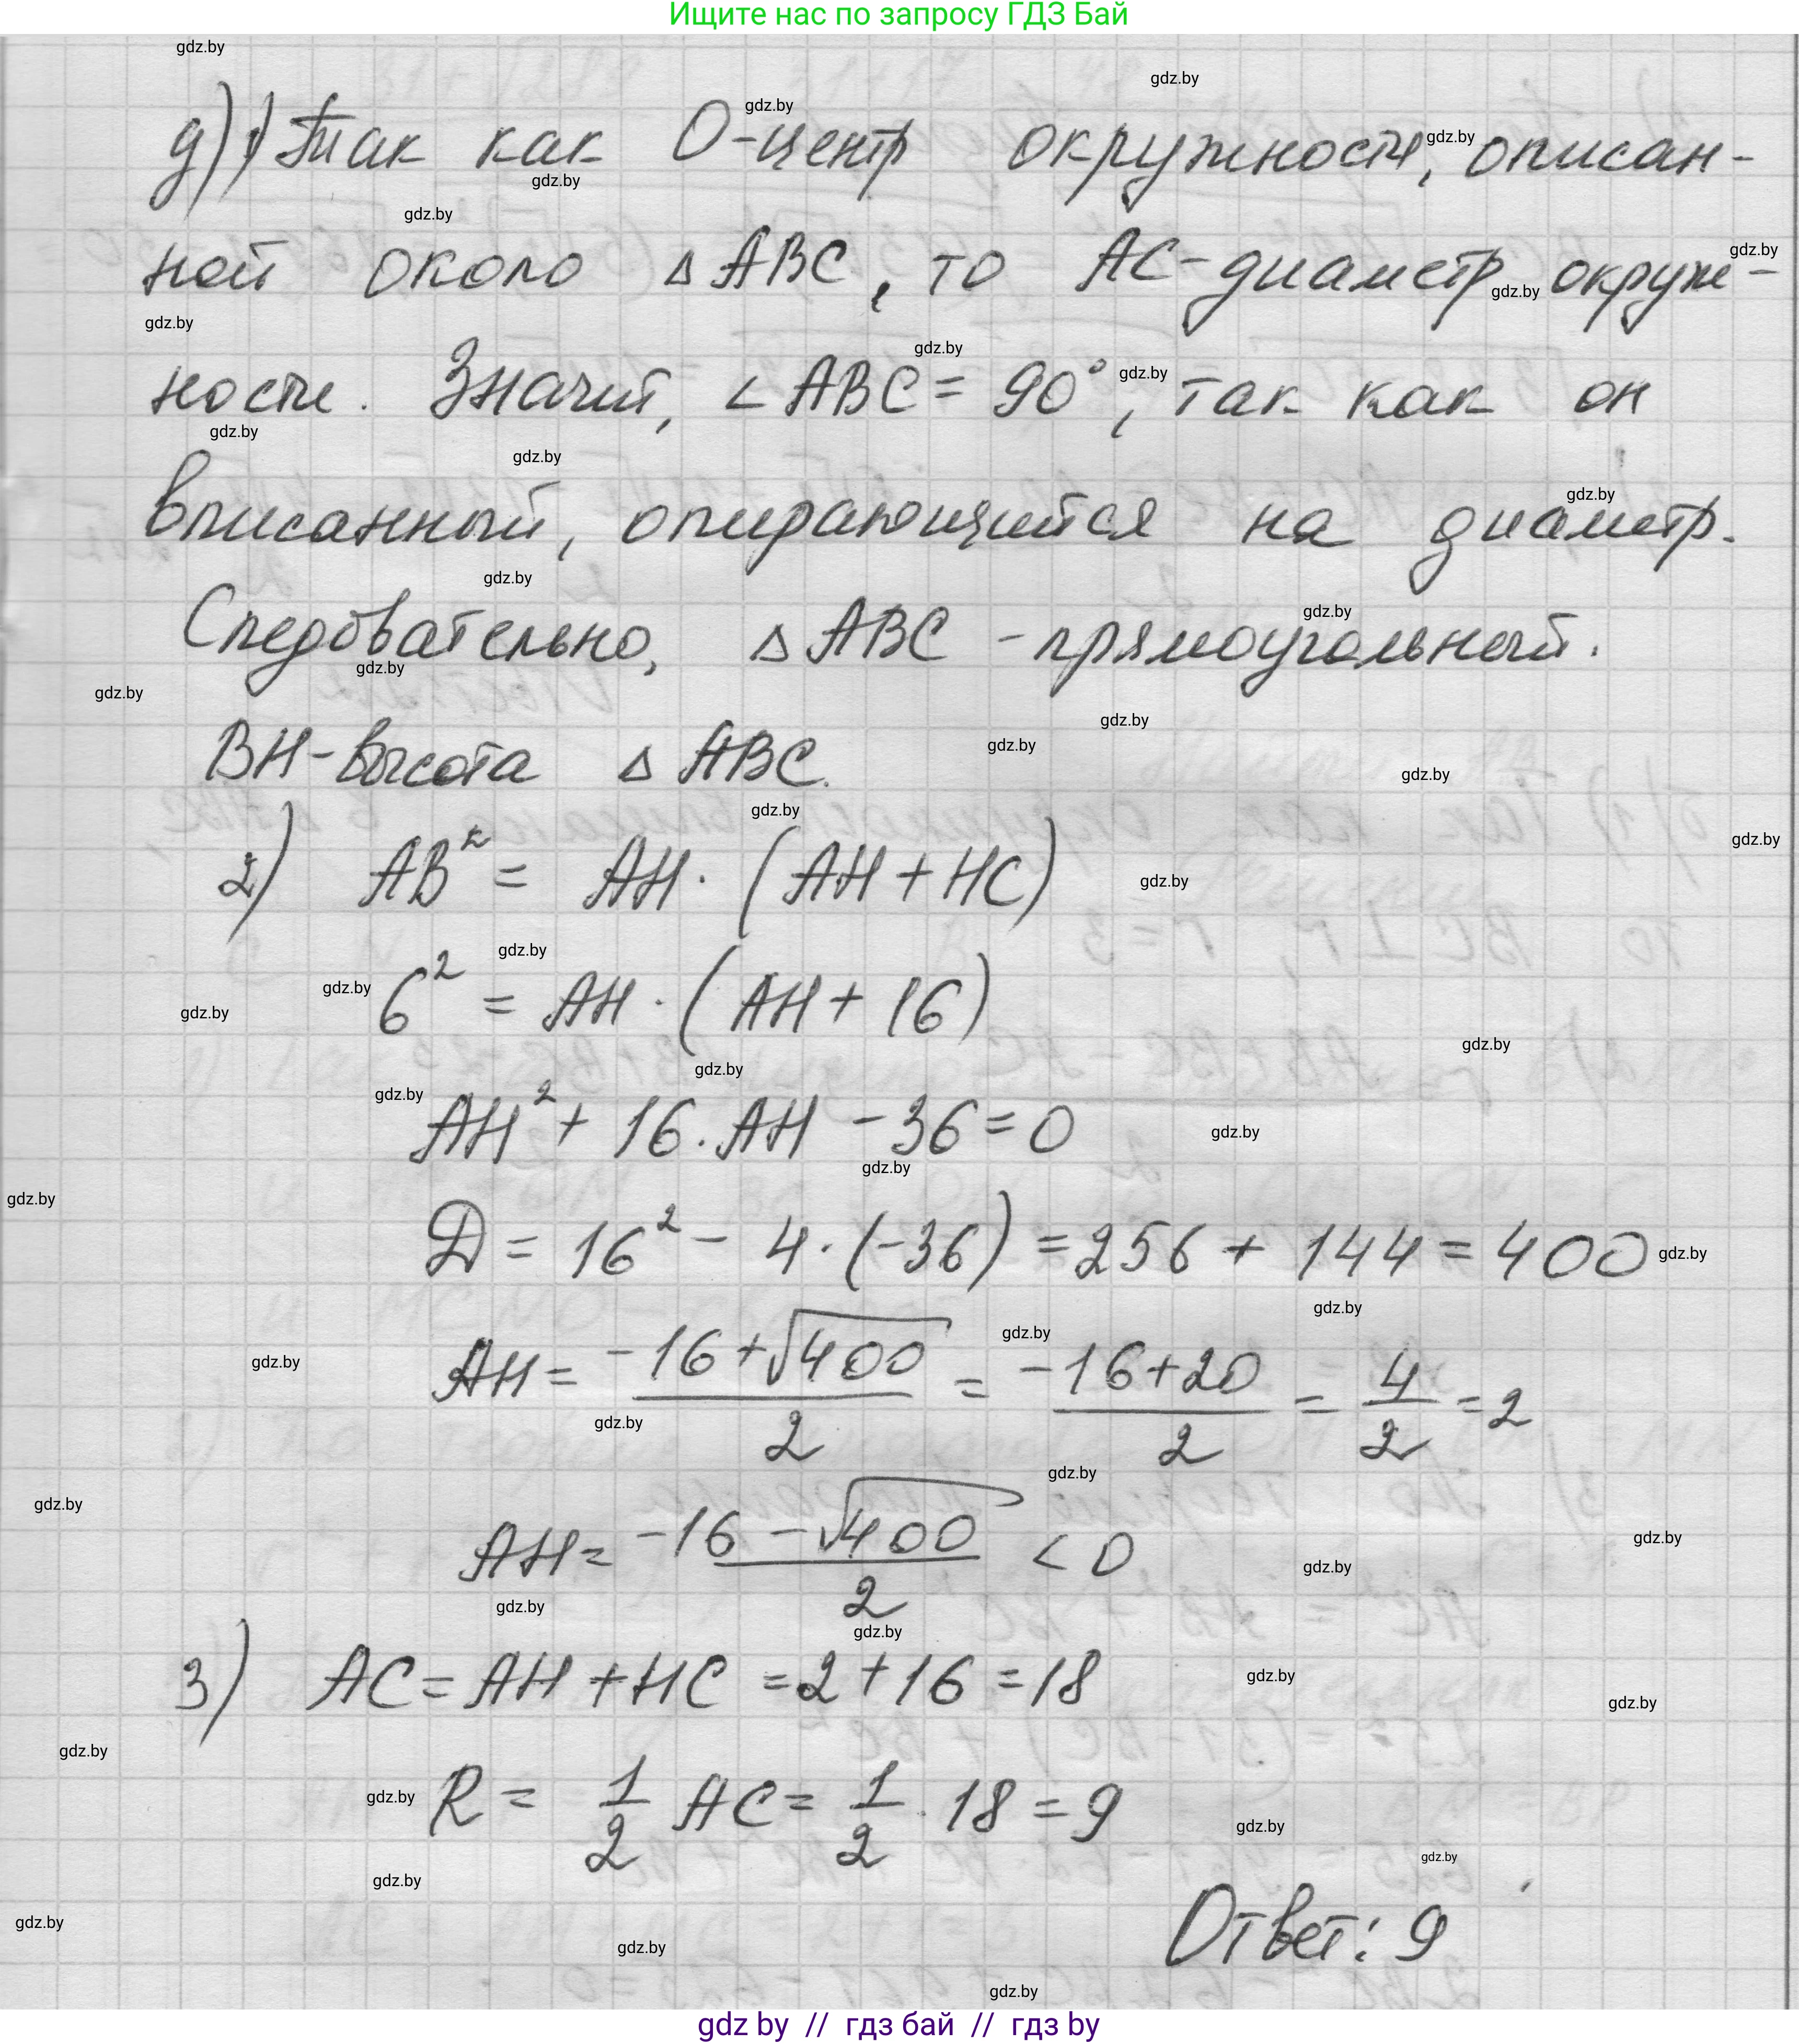 Ищите нас по запросу ГДЗ Бай
д) 1) Так как О-центр окружности, описан-
ной около △ABC, то AC-диаметр окруж-
ности. Значит, ∠ABC = 90°, так как он
вписанный, опирающийся на диаметр.
Следовательно, △ABC - прямоугольный.
BH-высота △ABC.
2) AB² = AH · (AH + HC)
6² = AH · (AH + 16)
AH² + 16 · AH - 36 = 0
D = 16² - 4 · (-36) = 256 + 144 = 400
AH = (-16 + √400)/2 = (-16 + 20)/2 = 4/2 = 2
AH = (-16 - √400)/2 < 0
3) AC = AH + HC = 2 + 16 = 18
R = 1/2 AC = 1/2 · 18 = 9
Ответ: 9
gdz by // гдз бай // гдз by